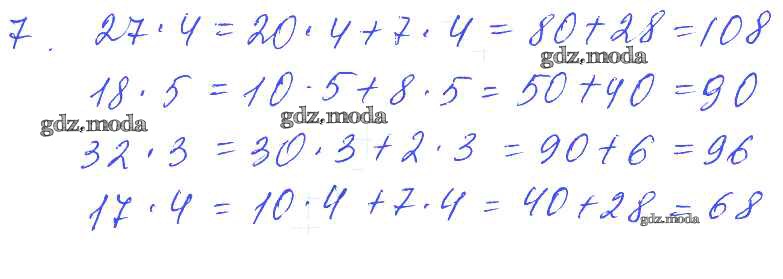 7. 27 · 4 = 20 · 4 + 7 · 4 = 80 + 28 = 108
gdz.moda
18 · 5 = 10 · 5 + 8 · 5 = 50 + 40 = 90
gdz.moda gdz.moda
32 · 3 = 30 · 3 + 2 · 3 = 90 + 6 = 96
17 · 4 = 10 · 4 + 7 · 4 = 40 + 28 = 68
gdz.moda